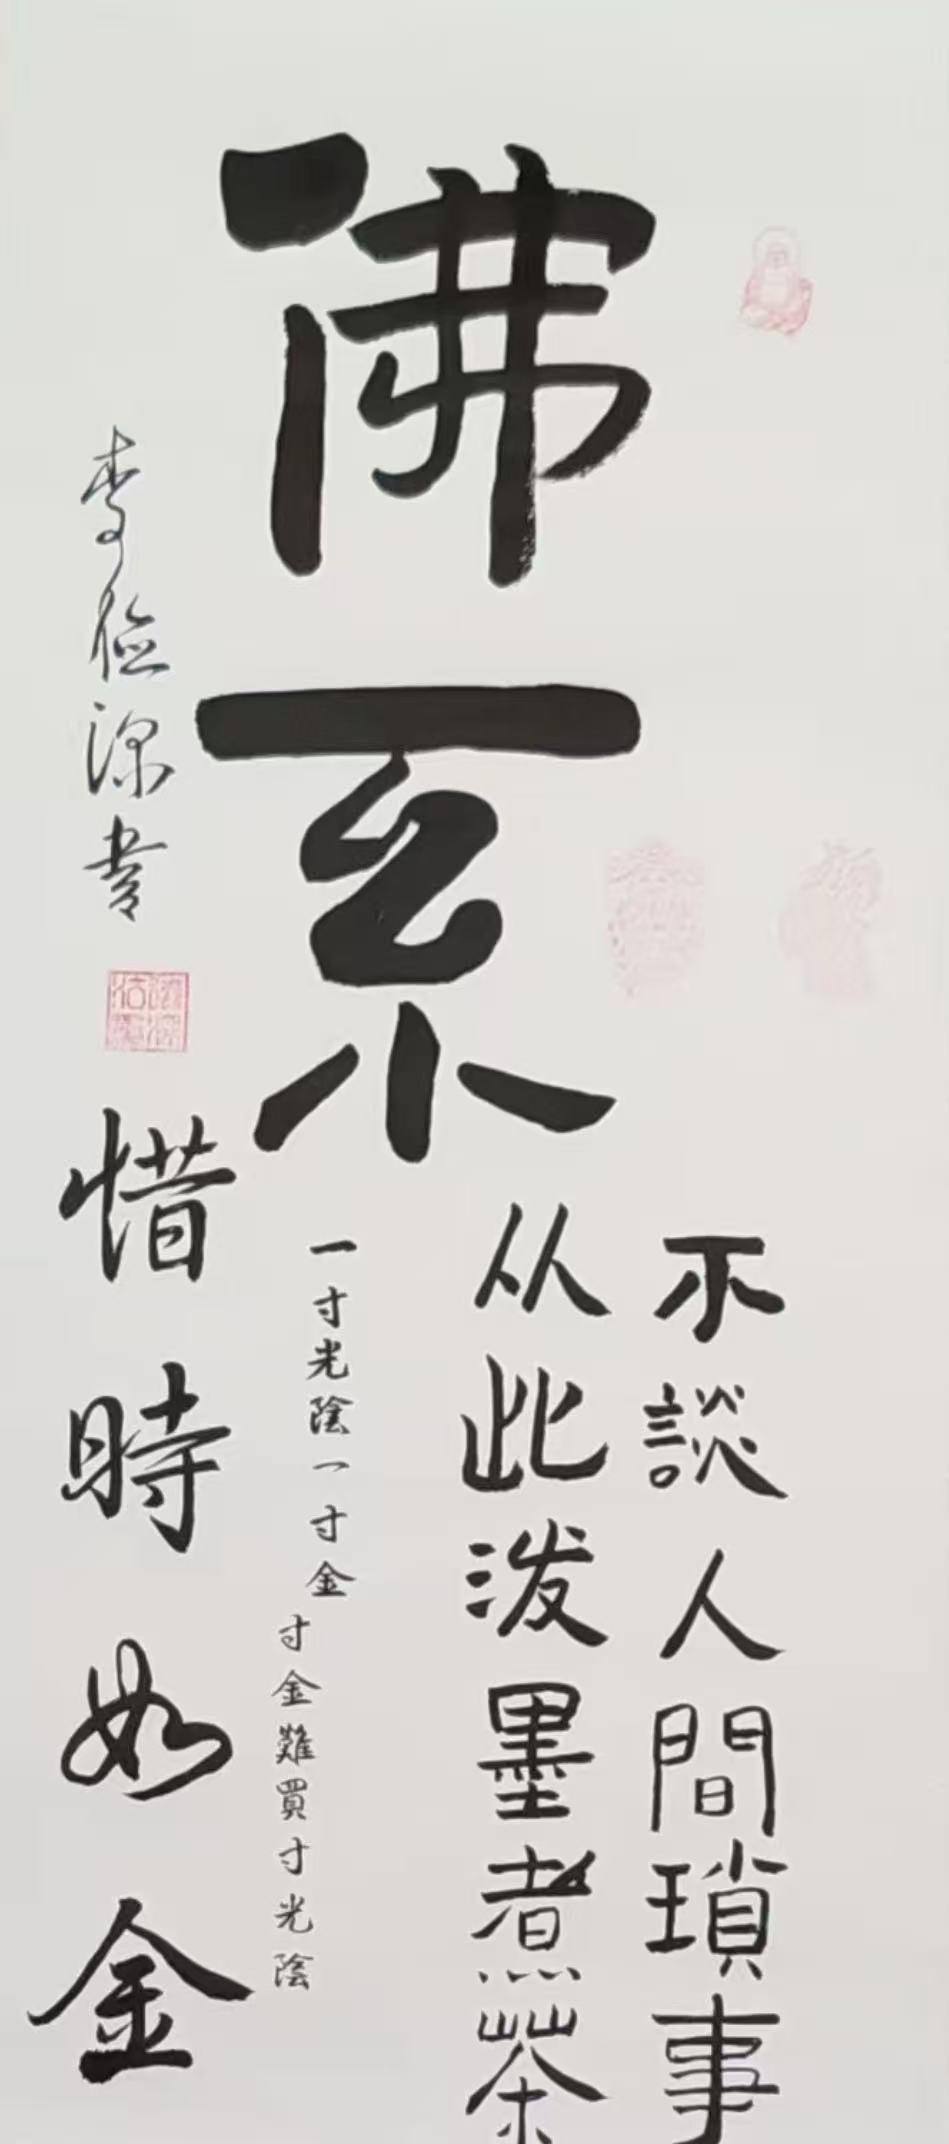 佛系
不談人間瑣事
从此泼墨煮茶
一寸光陰一寸金
寸金難買寸光陰
惜時如金
李俭深書